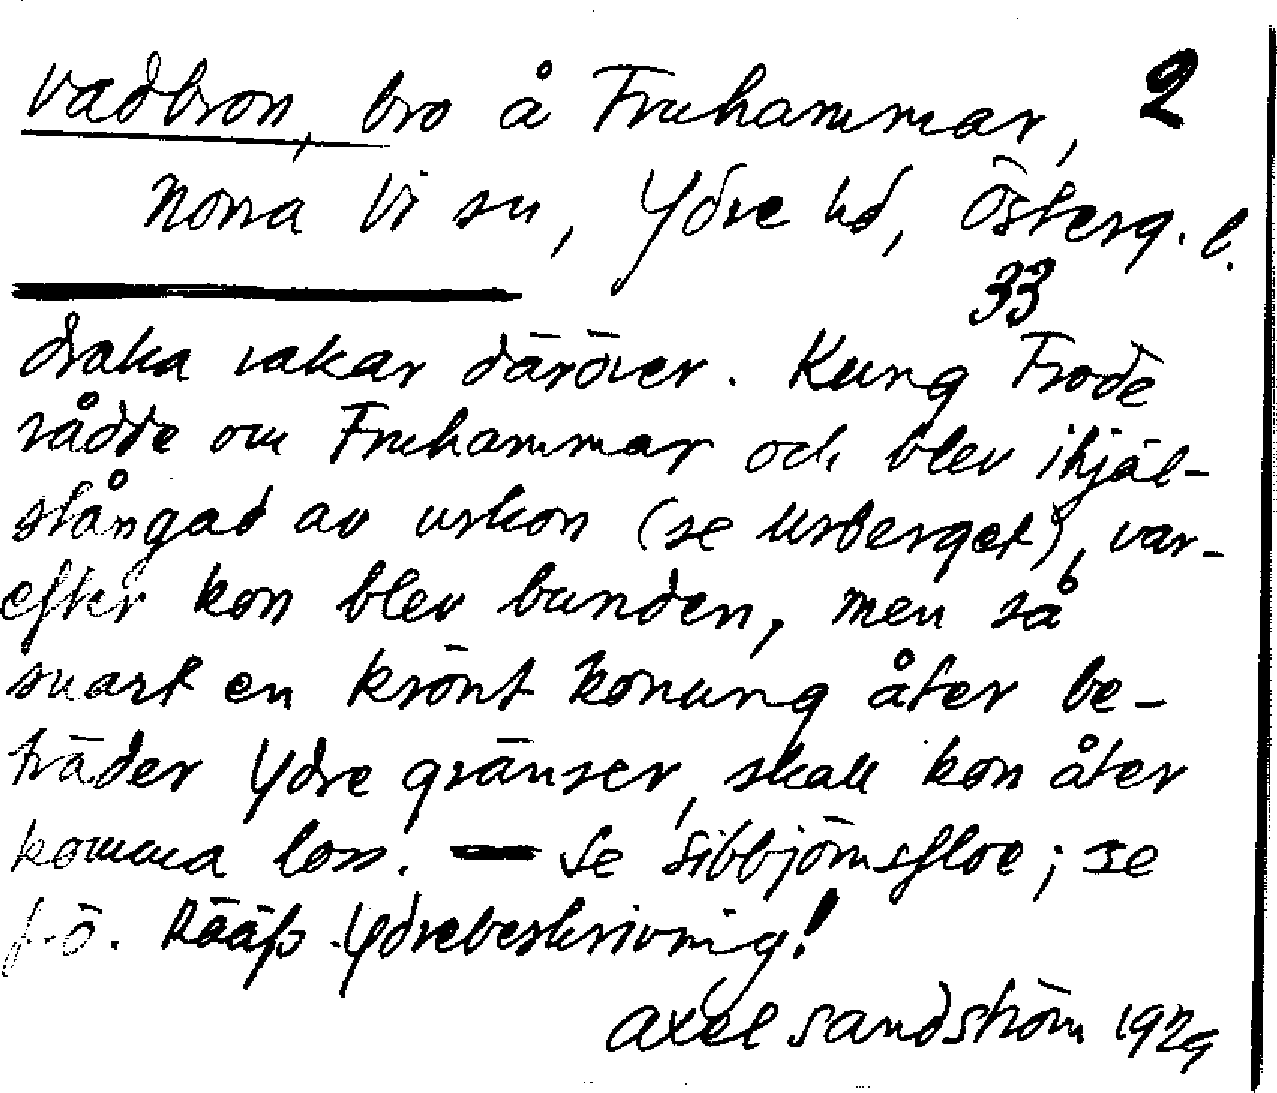 Vadbron, bro å Fruhammar, 2
Norra Vi sn, Ydre hd, Österg. l.
33
draka vakar däröver. Kung Frode
rådde om Fruhammar och blev ihjäl-
stångad av urkon (se Urberget), var-
efter kon blev bunden, men så
snart en krönt konung åter be-
träder Ydre gränser, skall kon åter
komma loss. — Se Sibbjörnsfloe; se
f.ö. Rääfs Ydrebeskrivning!
Axel Sandström 1929